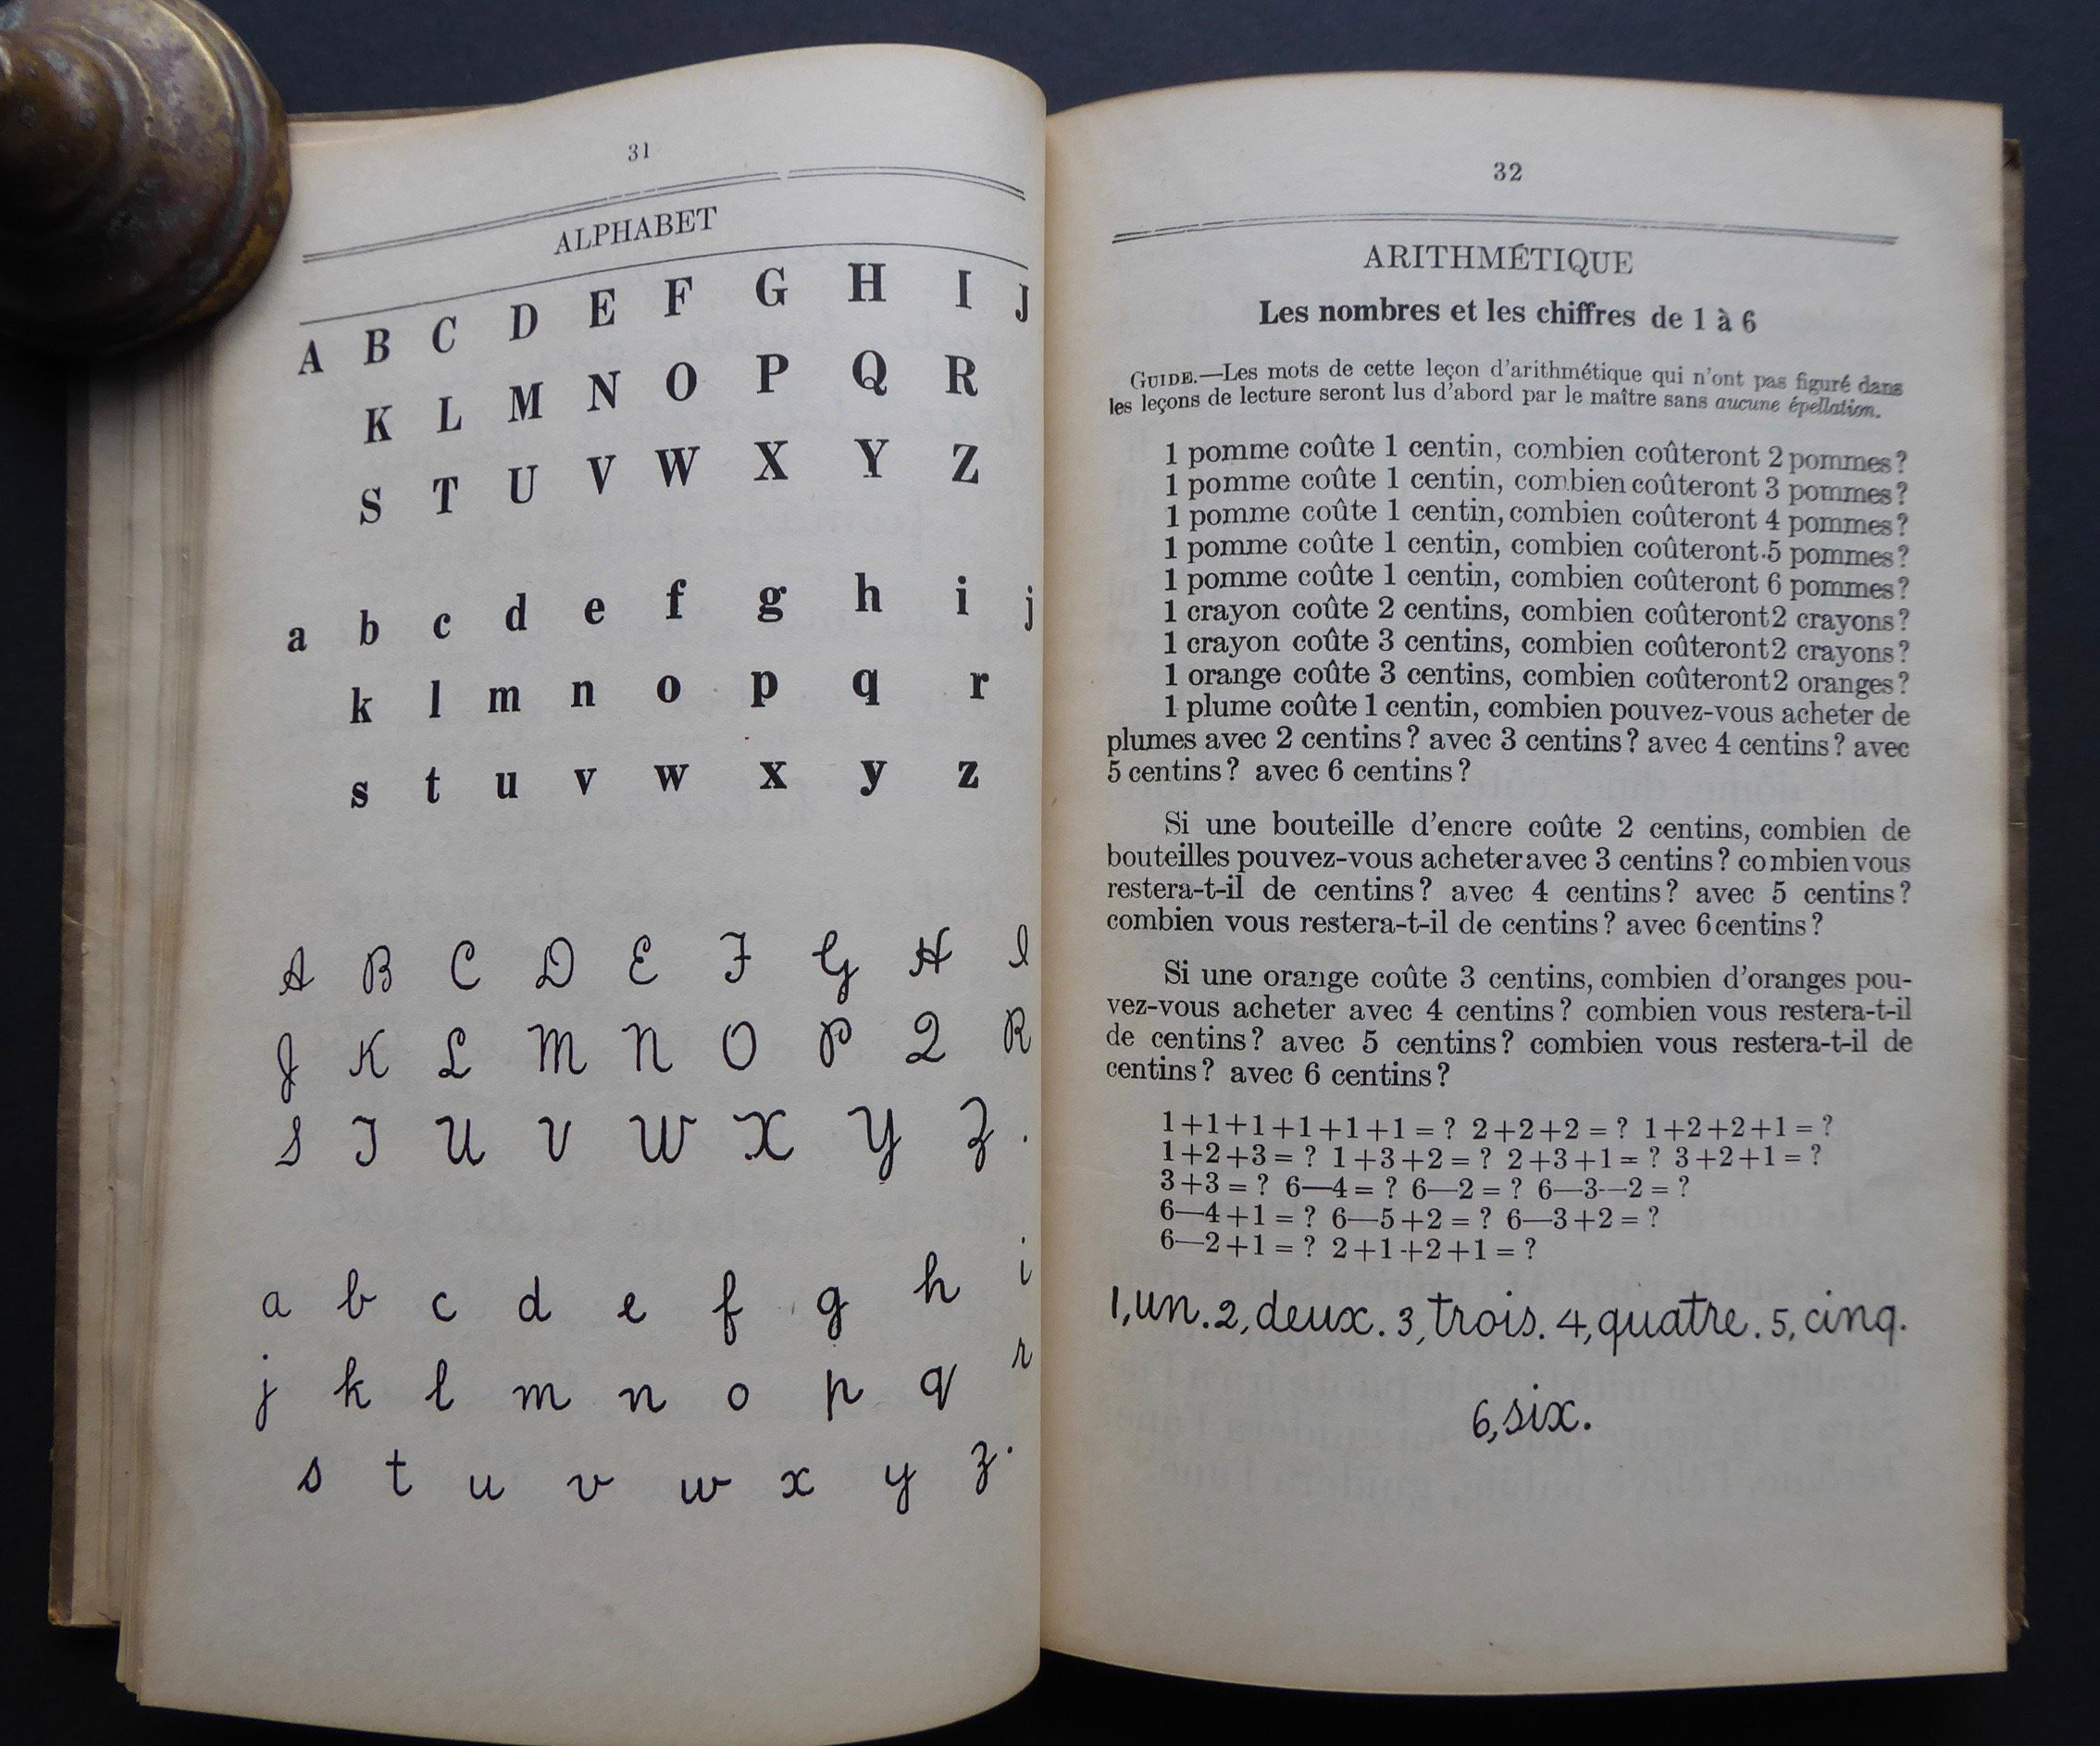 31
ALPHABET
A B C D E F G H I J
K L M N O P Q R
S T U V W X Y Z
a b c d e f g h i j
k l m n o p q r
s t u v w x y z
A B C D E F G H I
J K L M N O P Q R
S T U V W X Y Z.
a b c d e f g h i
j k l m n o p q r
s t u v w x y z.
32
ARITHMÉTIQUE
Les nombres et les chiffres de 1 à 6
GUIDE.—Les mots de cette leçon d'arithmétique qui n'ont pas figuré dans
les leçons de lecture seront lus d'abord par le maître sans aucune épellation.
1 pomme coûte 1 centin, combien coûteront 2 pommes?
1 pomme coûte 1 centin, combien coûteront 3 pommes?
1 pomme coûte 1 centin, combien coûteront 4 pommes?
1 pomme coûte 1 centin, combien coûteront 5 pommes?
1 pomme coûte 1 centin, combien coûteront 6 pommes?
1 crayon coûte 2 centins, combien coûteront 2 crayons?
1 crayon coûte 3 centins, combien coûteront 2 crayons?
1 orange coûte 3 centins, combien coûteront 2 oranges?
1 plume coûte 1 centin, combien pouvez-vous acheter de
plumes avec 2 centins? avec 3 centins? avec 4 centins? avec
5 centins? avec 6 centins?
Si une bouteille d'encre coûte 2 centins, combien de
bouteilles pouvez-vous acheter avec 3 centins? combien vous
restera-t-il de centins? avec 4 centins? avec 5 centins?
combien vous restera-t-il de centins? avec 6 centins?
Si une orange coûte 3 centins, combien d'oranges pou-
vez-vous acheter avec 4 centins? combien vous restera-t-il
de centins? avec 5 centins? combien vous restera-t-il de
centins? avec 6 centins?
1+1+1+1+1+1=? 2+2+2=? 1+2+2+1=?
1+2+3=? 1+3+2=? 2+3+1=? 3+2+1=?
3+3=? 6—4=? 6—2=? 6—3—2=?
6—4+1=? 6—5+2=? 6—3+2=?
6—2+1=? 2+1+2+1=?
1, un. 2, deux. 3, trois. 4, quatre. 5, cinq.
6, six.